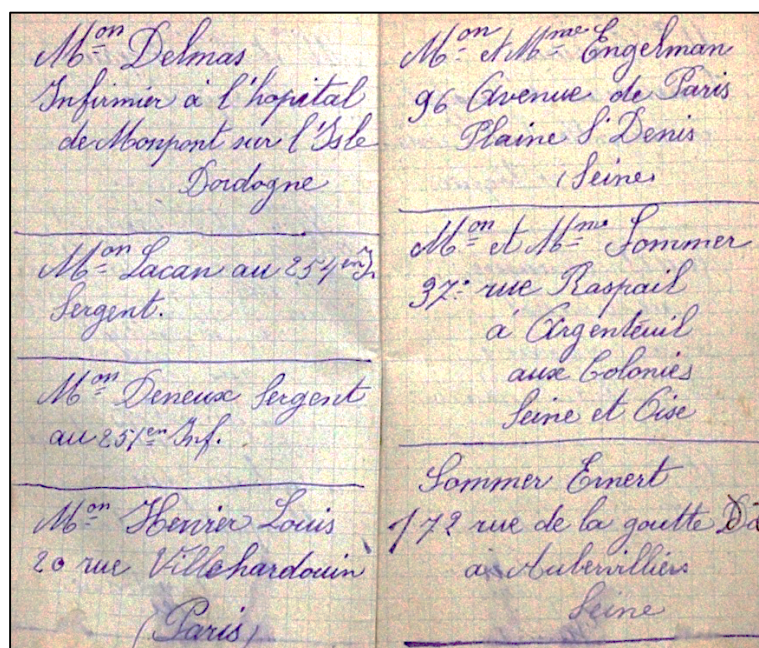 Mon Delmas
Infirmier à l'hopital
de Monpont sur l'Isle
Dordogne
Mon Lacan au 254en I.
Sergent.
Mon Deneux Sergent
au 251en Inf.
Mon Henrier Louis
20 rue Villehardouin
(Paris)
Mon et Mme Engelman
96 Avenue de Paris
Plaine St Denis
(Seine)
Mon et Mme Sommer
37: rue Raspail
à Argenteuil
aux Colonies
Seine et Oise
Sommer Ernert
172 rue de la goutte
à Aubervilliers
Seine